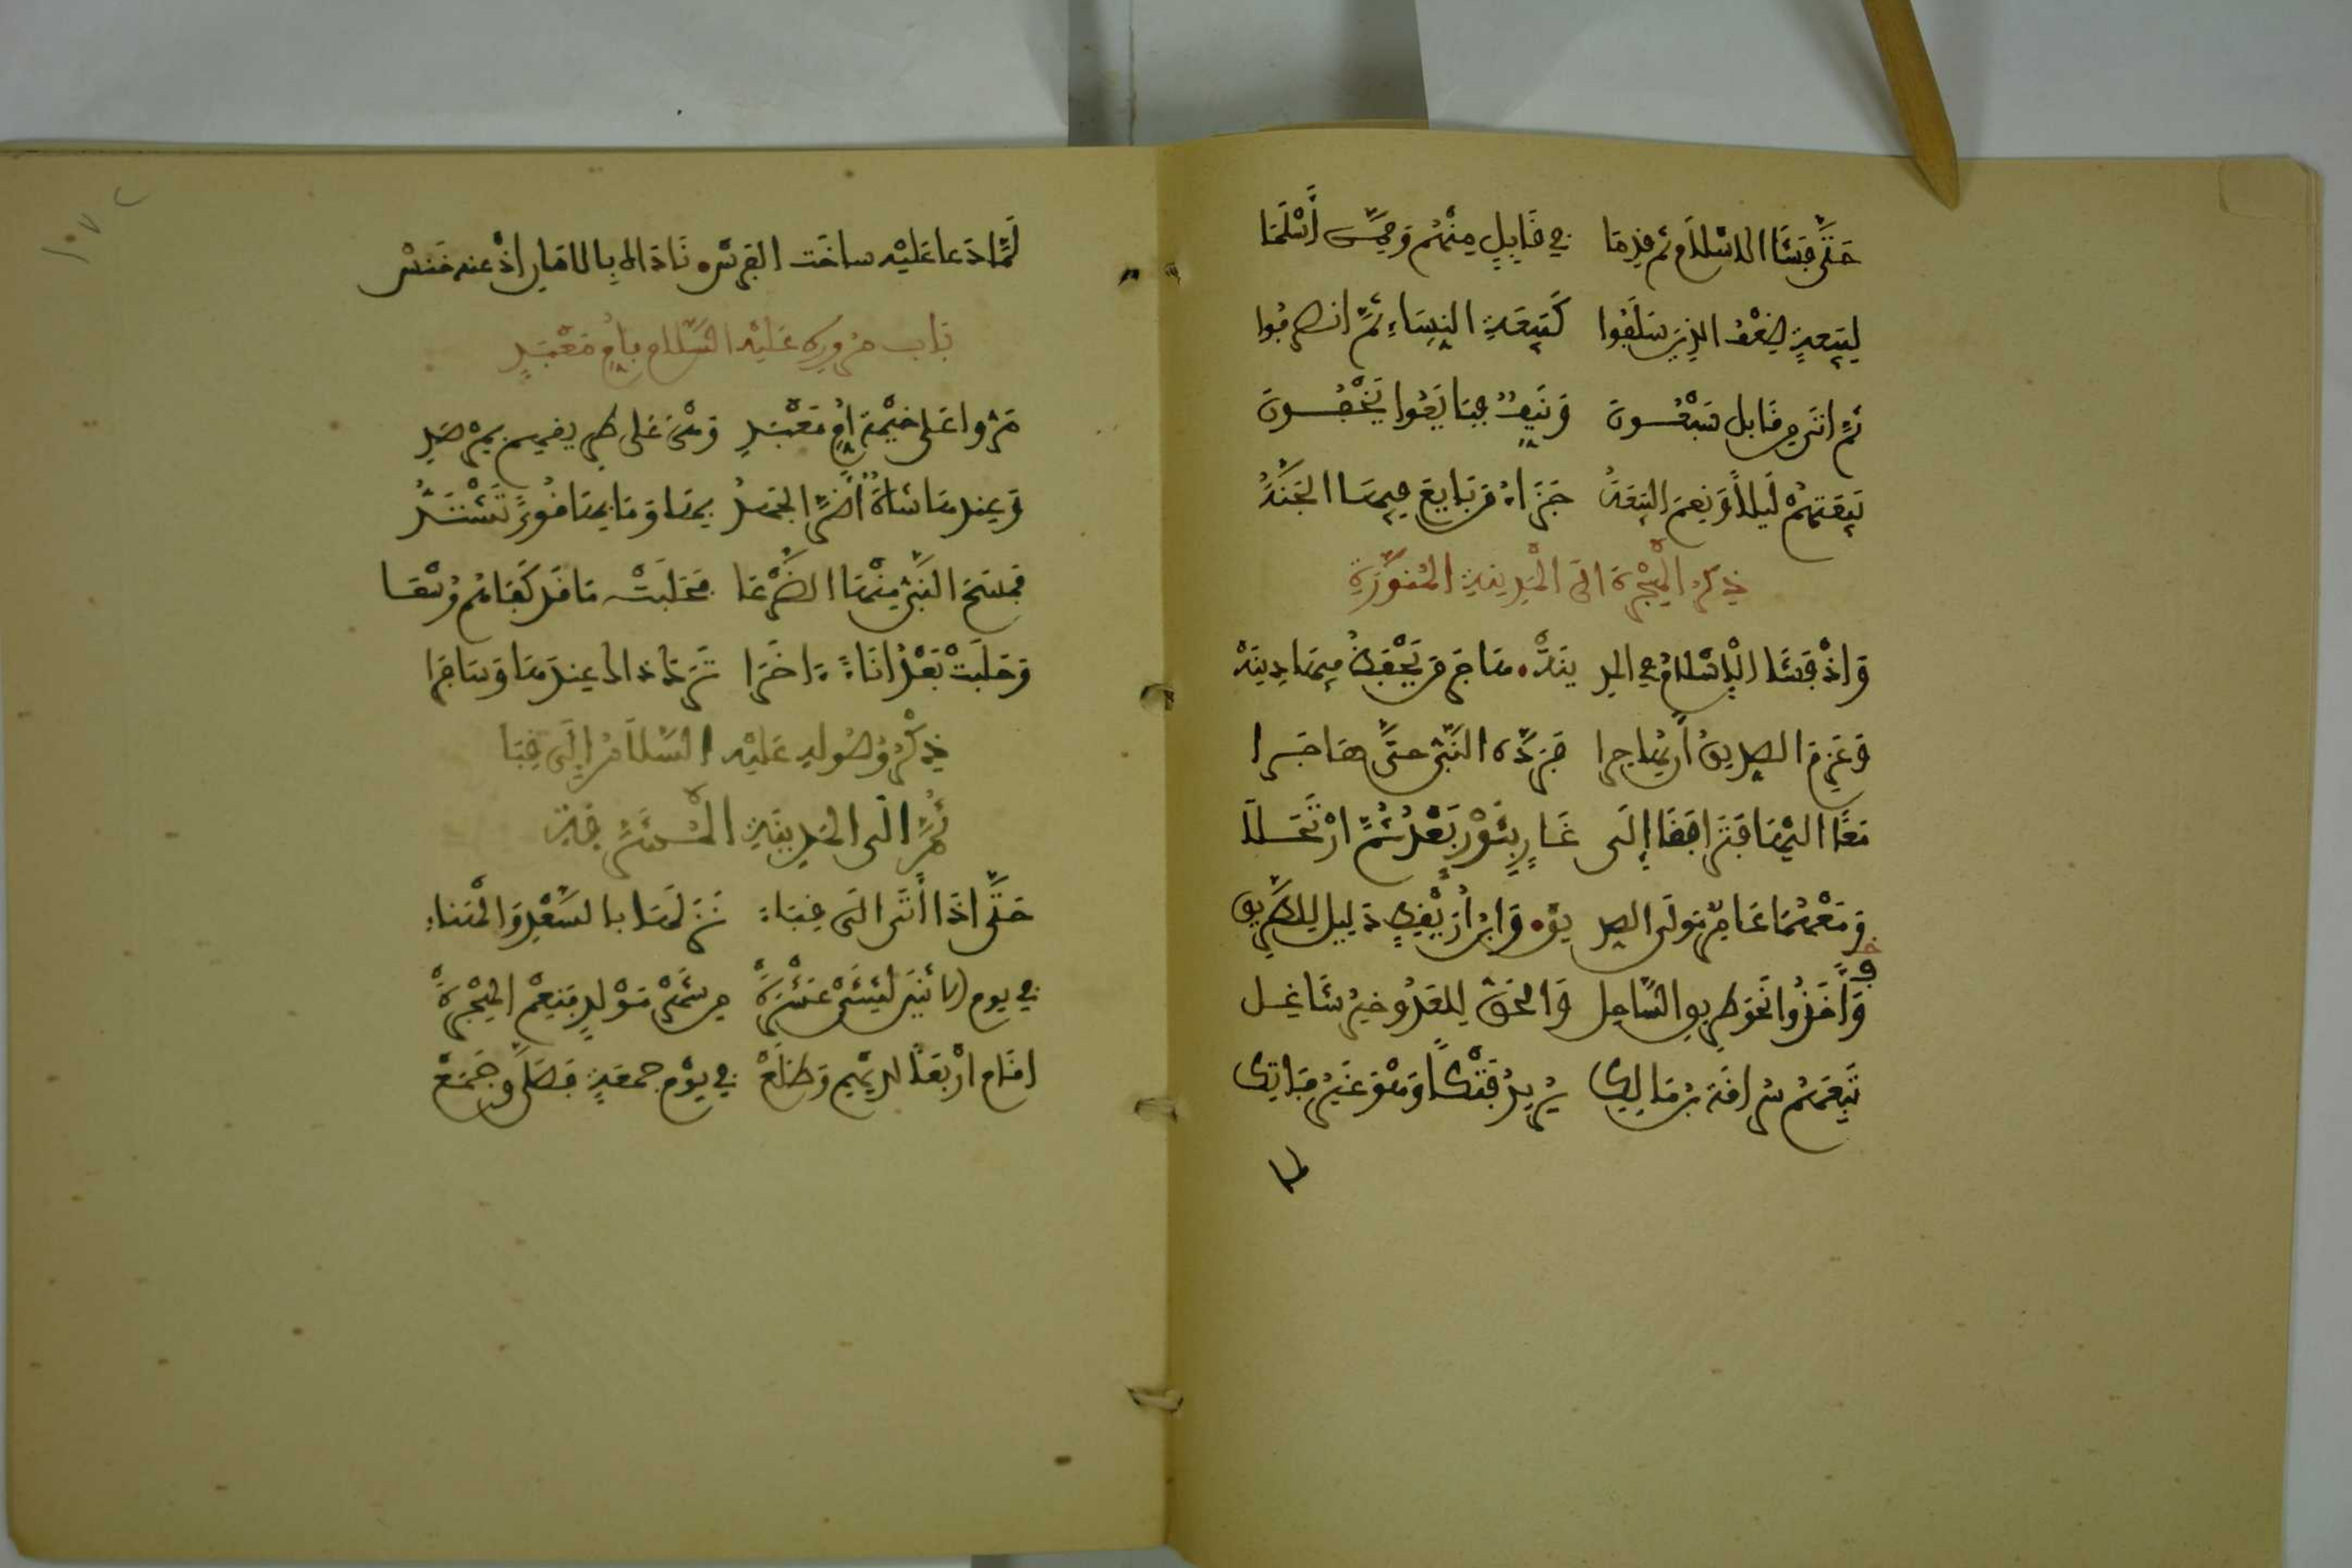 حَتَّى فَشَا الاسْلاَمُ ثم قدِمَا في قَابِلٍ مِنْهُم وَمِمَّنْ أَسْلَمَا
لِبَيعةٍ ضِعْفُ الذِينَ سَلَفُوا كَبَيعَةِ النِسَاءِ ثُمَّ انصرفوا
ثُمَّ اتَى مِن قَابل سَبْعُونَ وَنَيِّفٌ فبَايَعُوا يُخْفُونَ
بَيعَتهُمْ لَيلاً وَنِعْمَ البَيعَةُ جَزَاءُ مَن بَايَعَ فِيهَا الجَنَّةُ
ذِكرُ الْهِجْرَة الَى الْمَدِينَةِ المُنَوَّرَةِ
وَاذْ فَشَا الإسْلامُ في المدِ ينَةِ هَاجَرَ مَن يَحْفِظُ فيهَا دِينَهْ
وَعَزمَ الصديقُ أن يُهاجرا فَرَدَّهُ النَّبيُّ حتَّى هَاجَرا
مَعًا اليْهَا فَتَرَافَقَا إلَى غَارٍ بثَوْرٍ بَعْدُ ثُمَّ ارْتَحَلاَ
وَمَعْهُمَا عَامِرُ مَولَى الصد يقِ وَابنُ أُرَيْقِطٍ دَلِيل لِلطَّرِيق
وَأَخَذُوا نَحْوَ طَرِيقِ السَّاحِل وَالحَقُّ لِلعَدُوِّ خيرُ شَاغِل
تَبِعَهُمْ سُراقَة بنُ مَالِكِ يُرِيدُ فَتْكًا وَهْوَ غَيْرُ فَاتِكِ
لما
لَمَّا دَعا عَلَيْهِ ساخَت الفرَسُ نَادَاهُ بِالامَانِ اذْ عنه حُبِسْ
بَاب مُرُورِهِ عَلَيْهِ السَّلام بِأُمِّ مَعْبَدٍ
مَرُّوا عَلى خَيْمَةِ أُمِّ مَعْبَدٍ وَهْيَ عَلى طريقهِم بِمَرْصَدِ
وَعِندهَا شاةٌ أَضَرَّ الجَهدُ بِهَا وَمَا بِهَا قُوىً تَشْتَدُّ
فَمَسَحَ النَّبيُّ مِنْهَا الضَّرْعَا فحَلَبَتْ مَا قَد كَفَاهُم وُسْعَا
وَحَلَبَتْ بَعْدُ إنَاءً ءَاخَرَا تَرَكَ ذاكَ عِندَهَا وَسَافَرَا
ذِكْرُ وُصُولِهِ عَلَيْهِ السَّلاَمُ إلَى قُبَا
ثُمَّ الَى المَدِينَةِ
حَتَّى اذَا أَتَى الَى قُبَاءِ نَزَلَهَا بالسَعْدِ وَالْهَنَاءِ
في يوم الاثْنَيْنِ لثِنْتَيْ عَشْرَةْ مِن شَهْرِ مَوْلِدٍ فَنِعْمَ الهِجْرَةْ
اقَامَ ارْبَعًا لدَيْهِم وَطَلَعْ في يَوْمِ جمعَةٍ فَصَلَّى وَجَمَعْ
١٠٧٢